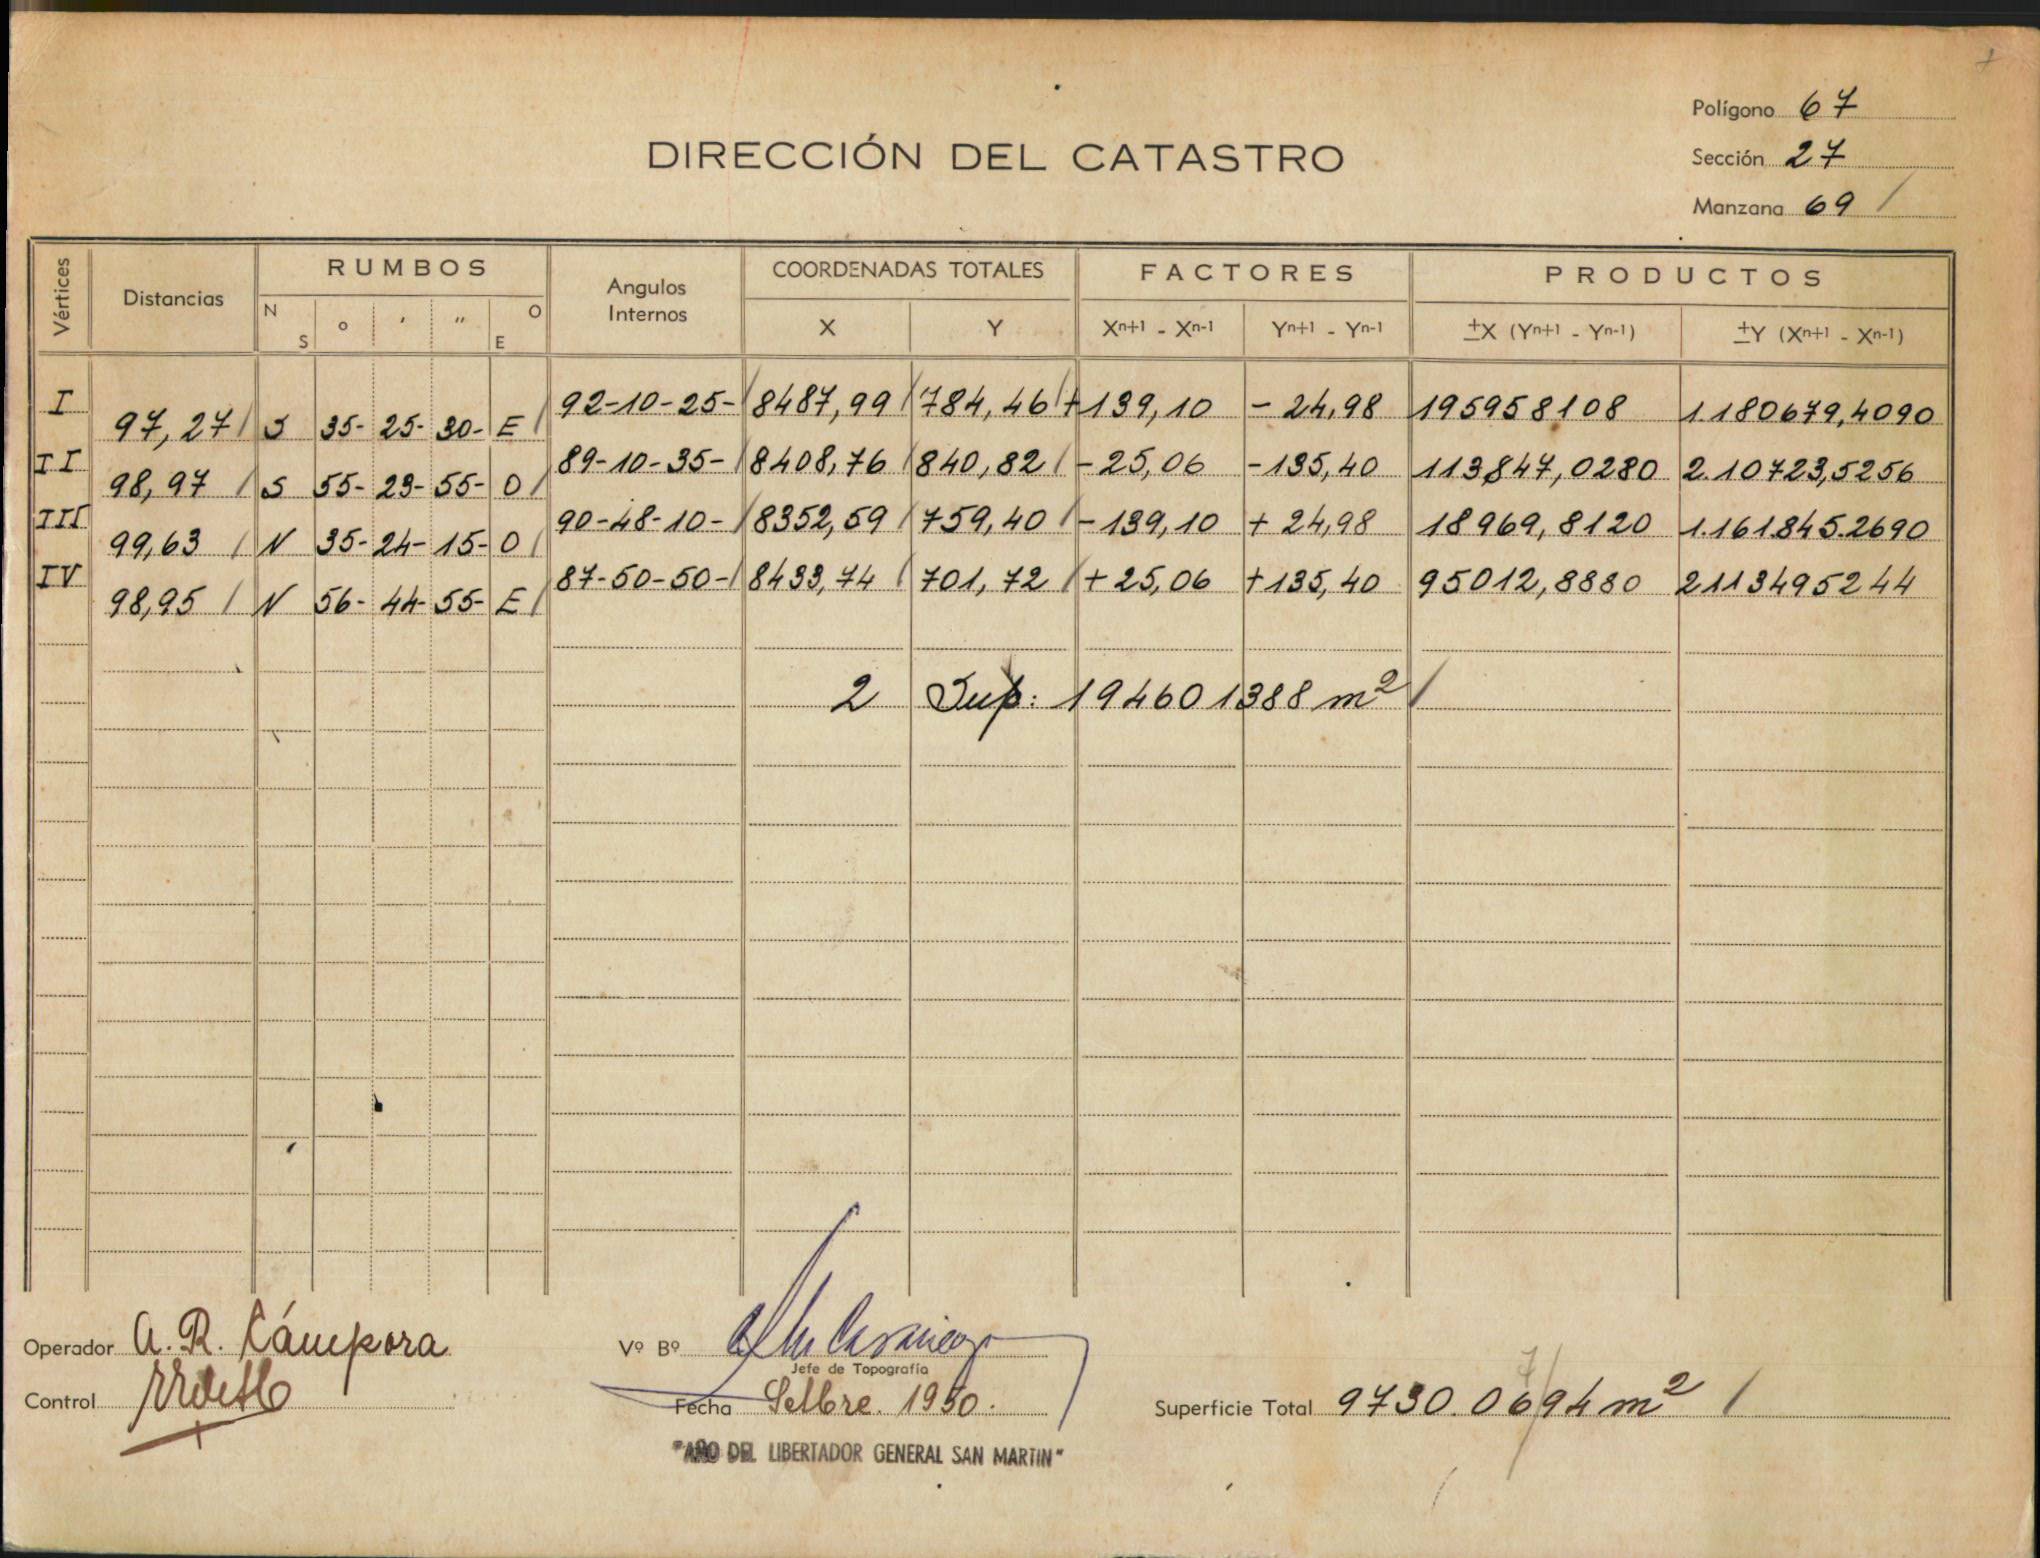 Polígono 67
DIRECCIÓN DEL CATASTRO
Sección 27
Manzana 69
Vértices Distancias RUMBOS Angulos Internos COORDENADAS TOTALES FACTORES PRODUCTOS
N S o ' " O E X Y Xn+1 - Xn-1 Yn+1 - Yn-1 ±X (Yn+1 - Yn-1) ±Y (Xn+1 - Xn-1)
I 92-10-25- 8487,99 784,46 +139,10 - 24,98 195958108 1.180679,4090
97,27 S 35- 25- 30- E
II 89-10-35- 8408,76 840,82 - 25,06 -135,40 113847,0280 2.10723,5256
98,97 S 55- 23- 55- O
III 90-48-10- 8352,59 759,40 - 139,10 + 24,98 18969,8120 1.161.845.2690
99,63 N 35- 24- 15- O
IV 87-50-50- 8433,74 701,72 + 25,06 +135,40 95012,8880 2113495244
98,95 N 56- 44- 55- E
2 Sup: 194601388 m²
Operador A. R. Cámpora
Vº Bº
Jefe de Topografía
Control
Fecha Setbre. 1950.
Superficie Total 9730.0694 m²
7
"AÑO DEL LIBERTADOR GENERAL SAN MARTIN"